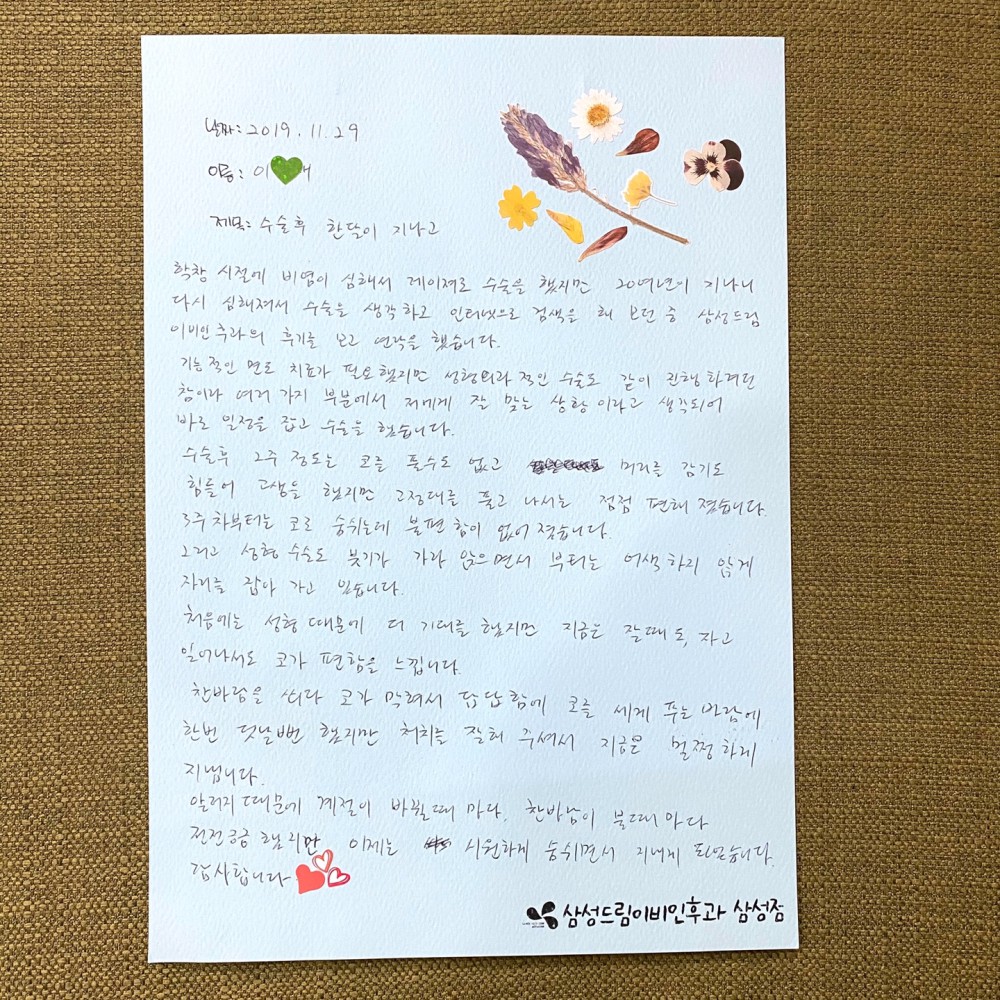 날짜: 2019. 11. 29
이름: 이 애
제목: 수술후 한달이 지나고
학창 시절에 비염이 심해서 레이져로 수술을 했지만 20여년이 지나니
다시 심해져서 수술을 생각하고 인터넷으로 검색을 해 보던 중 삼성드림
이비인후과의 후기를 보고 연락을 했습니다.
기능적인 면도 치료가 필요했지만 성형외과적인 수술도 같이 진행하려던
참이라 여러가지 부분에서 저에게 잘 맞는 상황이라고 생각되어
바로 일정을 잡고 수술을 했습니다.
수술후 2주 정도는 코를 풀수도 없고 머리를 감기도
힘들어 고생을 했지만 고정대를 풀고 나서는 점점 편해졌습니다.
3주차부터는 코로 숨쉬는데 불편함이 없어졌습니다.
그리고 성형수술도 붓기가 가라 앉으면서 부터는 어색하지 않게
자리를 잡아 가고 있습니다.
처음에는 성형 때문에 더 기대를 했지만 지금은 잘때도, 자고
일어나서도 코가 편함을 느낍니다.
찬바람을 쐬다 코가 막혀서 답답함에 코를 세게 푸는 바람에
한번 덧날뻔 했지만 처치를 잘해 주셔서 지금은 멀쩡하게
지냅니다.
알러지 때문에 계절이 바뀔때 마다, 찬바람이 불때 마다
전전긍긍 했지만 이제는 시원하게 숨쉬면서 지내게 되었습니다.
감사합니다
삼성드림이비인후과 삼성점